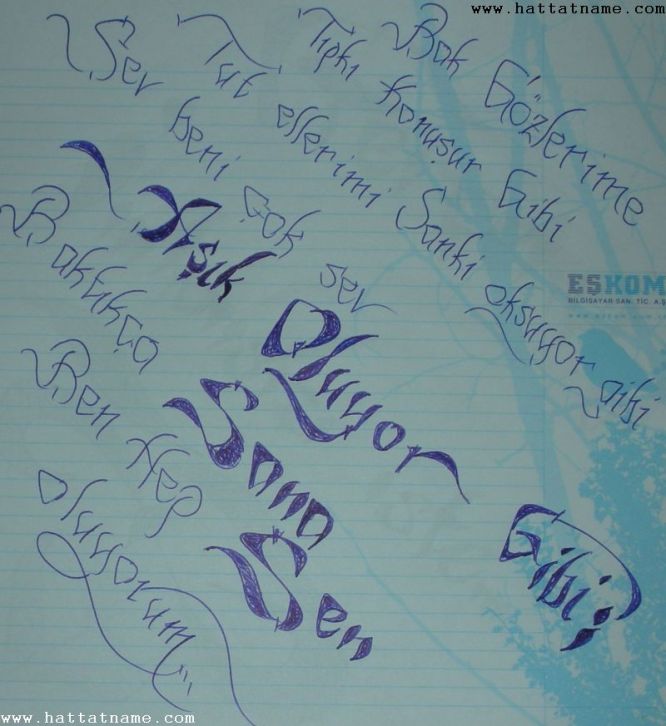 www.hattatname.com
Bak Gözlerime
Tıpkı Konuşur Gibi
Tut ellerimi Sanki okşuyor gibi
Sev beni çok sev
Aşık Oluyor Gibi;
Baktıkça Sana
Ben Hep Sen
oluyorum...
ESKOM
BİLGİSAYAR SAN. TİC. A.Ş
www.hattatname.com